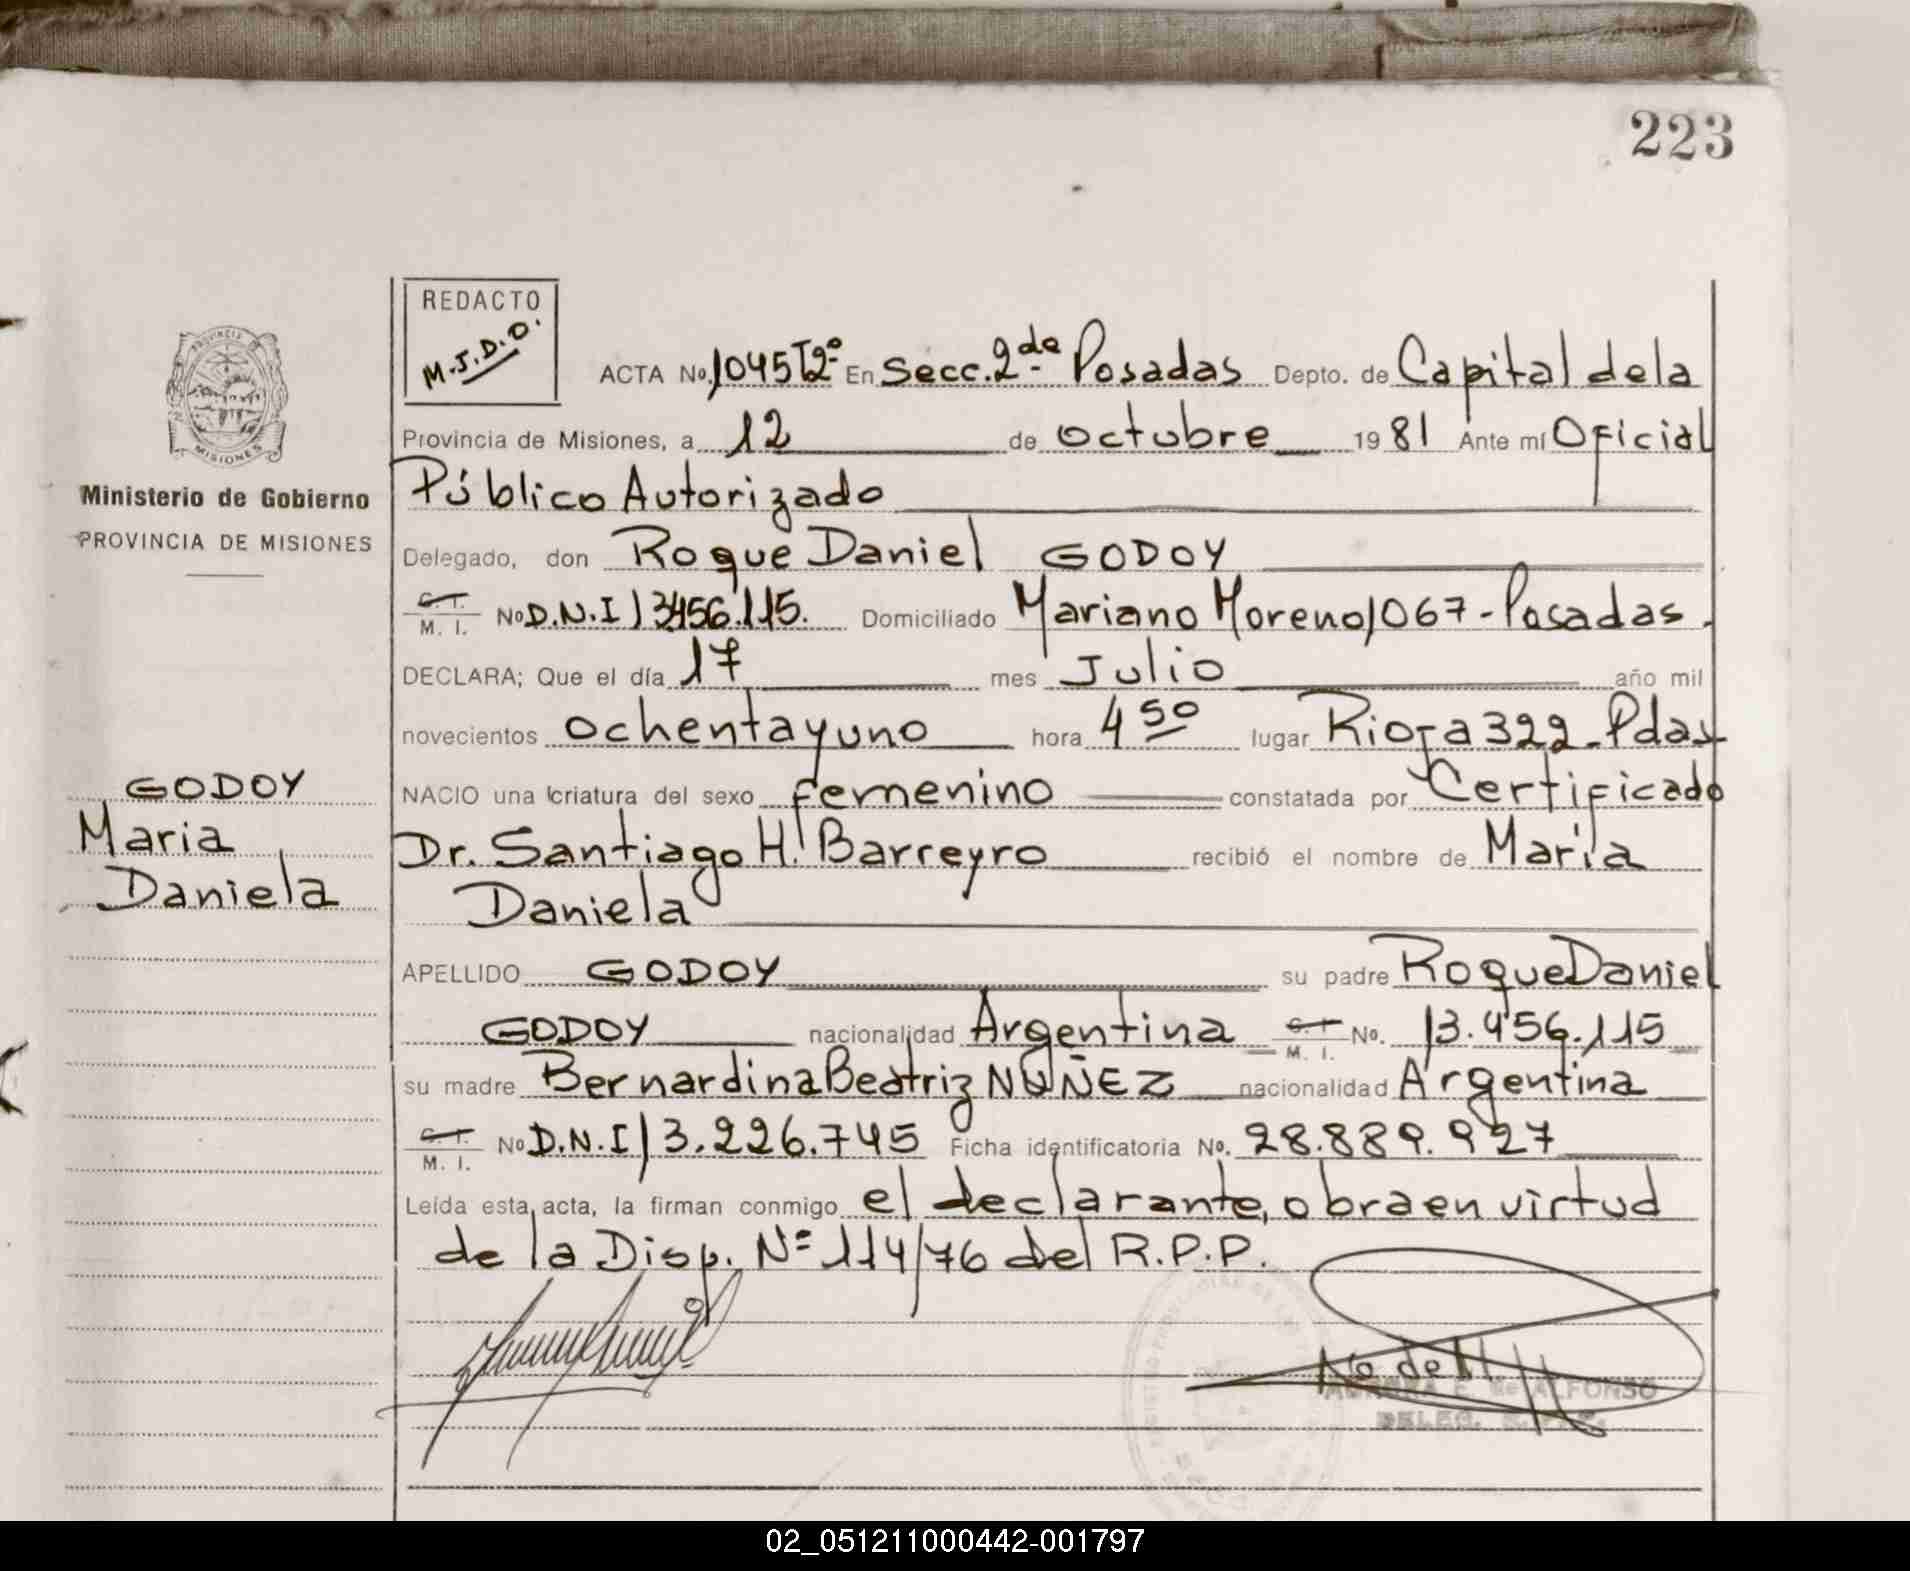 223
REDACTO
M.J.D.O.
ACTA No. 1045 T2º En Secc. 2da Posadas Depto. de Capital de la
Provincia de Misiones, a 12 de octubre 1981 Ante mí Oficial
Público Autorizado
Delegado, don Roque Daniel GODOY
C. I. M. I. No D.N.I 13456.115. Domiciliado Mariano Moreno 1067 - Posadas.
DECLARA; Que el día 17 mes Julio año mil
novecientos ochenta y uno hora 4 50 lugar Rioja 322 - Pdas
NACIO una criatura del sexo femenino constatada por Certificado
Dr. Santiago H. Barreyro recibió el nombre de María
Daniela
APELLIDO GODOY su padre Roque Daniel
GODOY nacionalidad Argentina C. I. M. I. No. 13.456.115
su madre Bernardina Beatriz NÚÑEZ nacionalidad Argentina
C. I. M. I. No D.N.I 13.226.745 Ficha identificatoria No. 28.889.927
Leída esta acta, la firman conmigo el declarante, obra en virtud
de la Disp. Nº 114/76 del R.P.P.
DE ALFONSO
DELEG.
PROVINCIA
MISIONES
Ministerio de Gobierno
PROVINCIA DE MISIONES
GODOY
Maria
Daniela
02_051211000442-001797